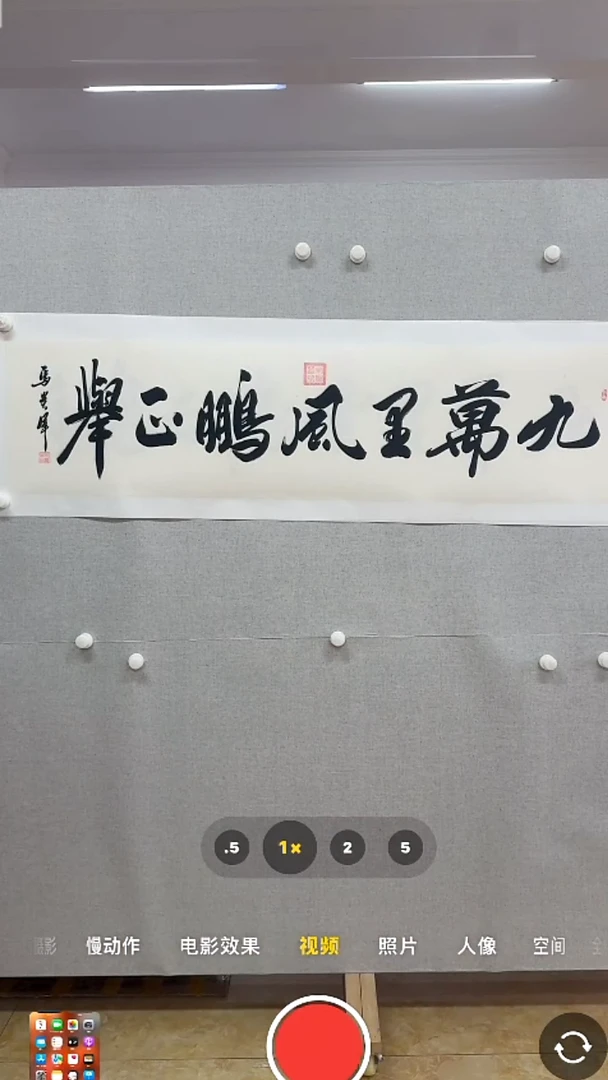 九萬里風鵬正舉
.5
1×
2
5
慢动作
电影效果
视频
照片
人像
空间